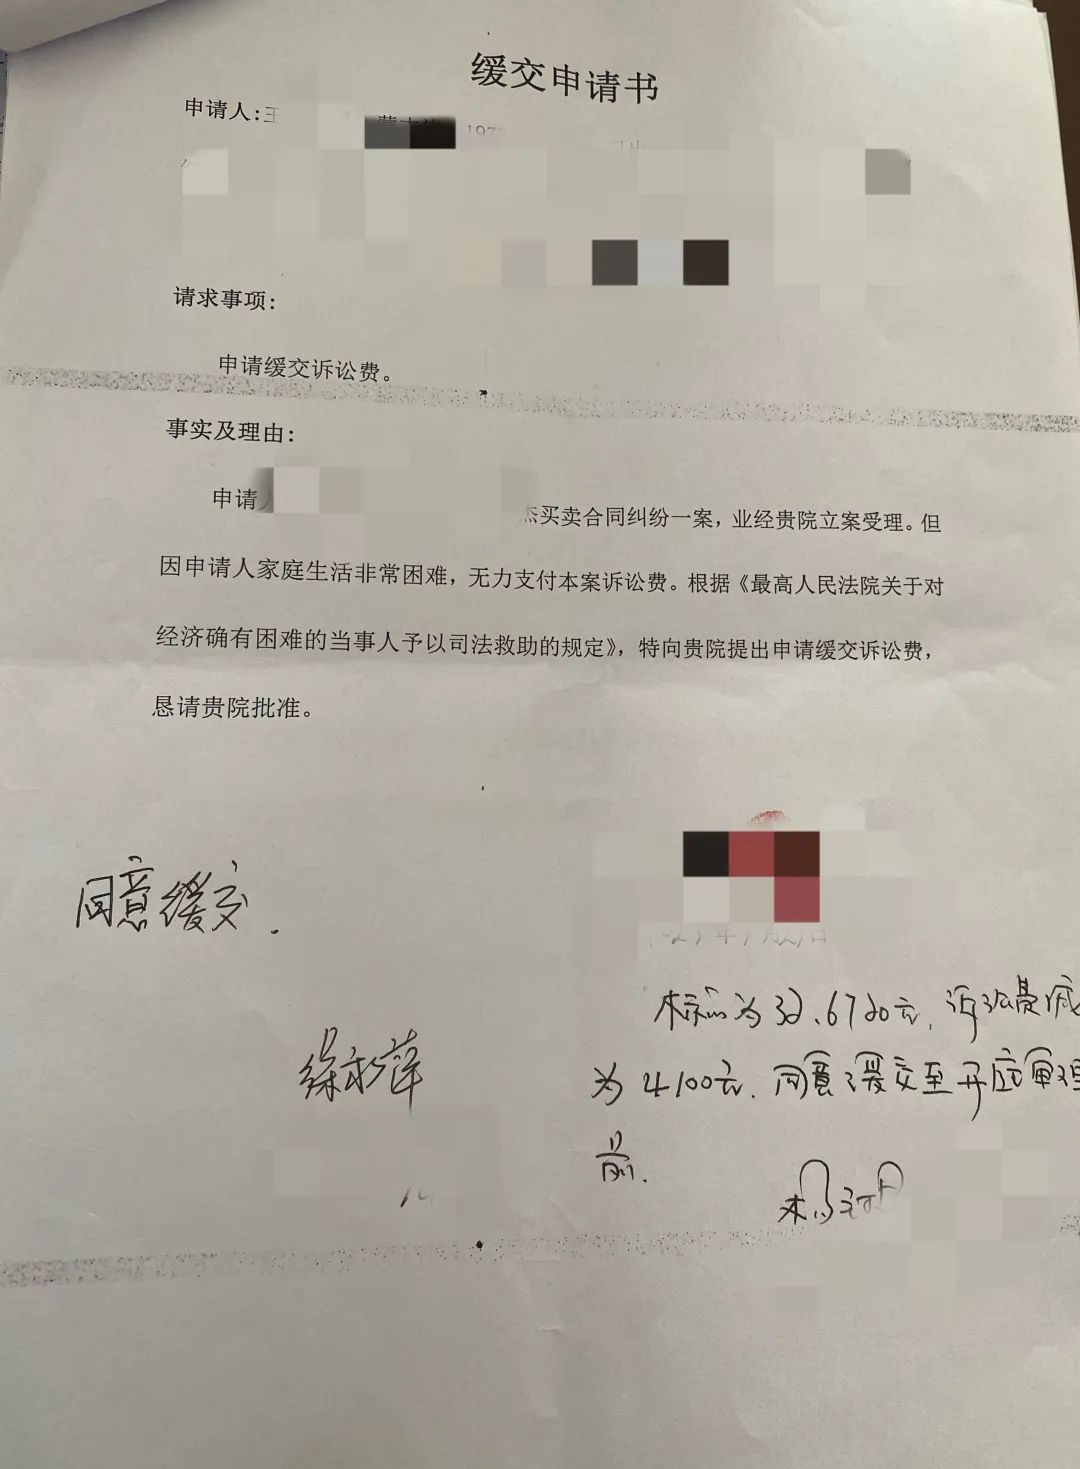 缓交申请书
申请人:王
197
请求事项:
申请缓交诉讼费。
事实及理由:
申请人
杰买卖合同纠纷一案，业经贵院立案受理。但
因申请人家庭生活非常困难，无力支付本案诉讼费。根据《最高人民法院关于对
经济确有困难的当事人予以司法救助的规定》，特向贵院提出申请缓交诉讼费，
恳请贵院批准。
同意缓交.
标的为32.6720元，诉讼费减
为4100元.同意缓交至开庭审理
前.